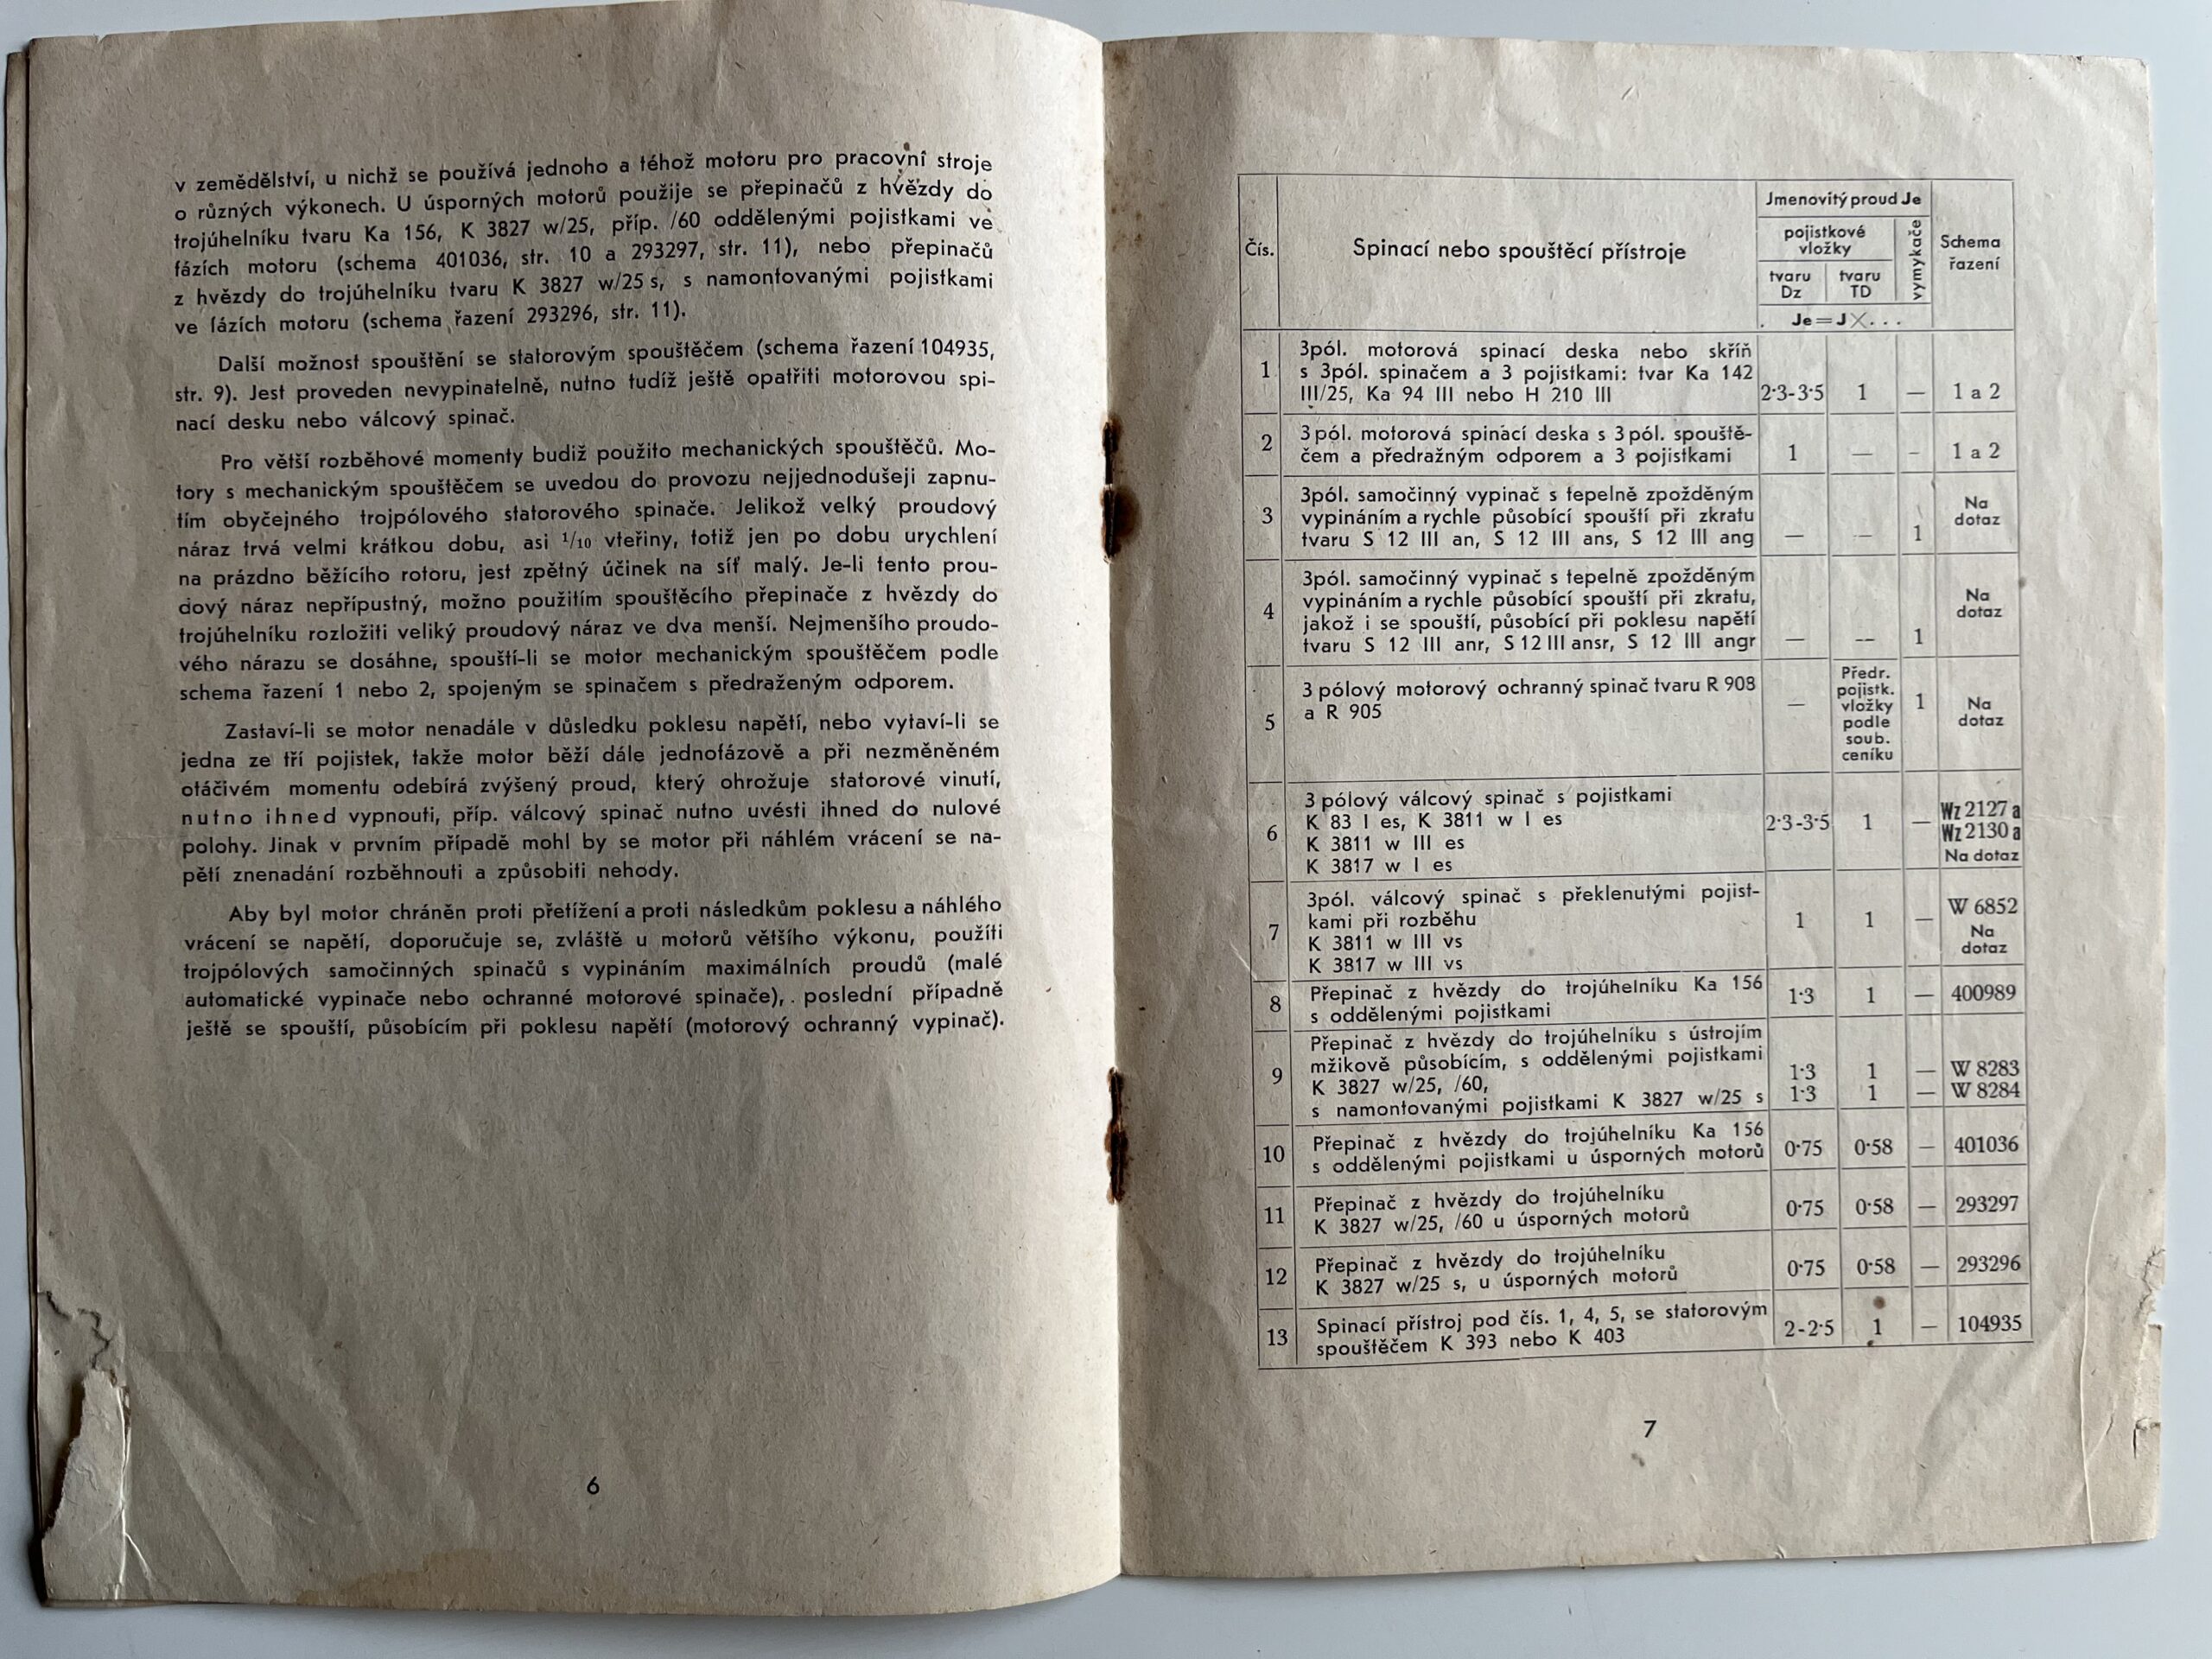 v zemědělství, u nichž se používá jednoho a téhož motoru pro pracovní stroje
o různých výkonech. U úsporných motorů použije se přepinačů z hvězdy do
trojúhelníku tvaru Ka 156, K 3827 w/25, příp. /60 oddělenými pojistkami ve
fázích motoru (schema 401036, str. 10 a 293297, str. 11), nebo přepinačů
z hvězdy do trojúhelníku tvaru K 3827 w/25 s, s namontovanými pojistkami
ve fázích motoru (schema řazení 293296, str. 11).
Další možnost spouštění se statorovým spouštěčem (schema řazení 104935,
str. 9). Jest proveden nevypinatelně, nutno tudíž ještě opatřiti motorovou spi-
nací desku nebo válcový spinač.
Pro větší rozběhové momenty budiž použito mechanických spouštěčů. Mo-
tory s mechanickým spouštěčem se uvedou do provozu nejjednodušeji zapnu-
tím obyčejného trojpólového statorového spinače. Jelikož velký proudový
náraz trvá velmi krátkou dobu, asi 1/10 vteřiny, totiž jen po dobu urychlení
na prázdno běžícího rotoru, jest zpětný účinek na síť malý. Je-li tento prou-
dový náraz nepřípustný, možno použitím spouštěcího přepinače z hvězdy do
trojúhelníku rozložiti veliký proudový náraz ve dva menší. Nejmenšího proudo-
vého nárazu se dosáhne, spouští-li se motor mechanickým spouštěčem podle
schema řazení 1 nebo 2, spojeným se spinačem s předraženým odporem.
Zastaví-li se motor nenadále v důsledku poklesu napětí, nebo vytaví-li se
jedna ze tří pojistek, takže motor běží dále jednofázově a při nezměněném
otáčivém momentu odebírá zvýšený proud, který ohrožuje statorové vinutí,
nutno ihned vypnouti, příp. válcový spinač nutno uvésti ihned do nulové
polohy. Jinak v prvním případě mohl by se motor při náhlém vrácení se na-
pětí znenadání rozběhnouti a způsobiti nehody.
Aby byl motor chráněn proti přetížení a proti následkům poklesu a náhlého
vrácení se napětí, doporučuje se, zvláště u motorů většího výkonu, použíti
trojpólových samočinných spinačů s vypináním maximálních proudů (malé
automatické vypinače nebo ochranné motorové spinače), poslední případně
ještě se spouští, působícím při poklesu napětí (motorový ochranný vypinač).
6
Čís.
Spinací nebo spouštěcí přístroje
Jmenovitý proud Je
pojistkové
vložky
tvaru
Dz
tvaru
TD
vymykače
Je=J×...
Schema
řazení
1
3pól. motorová spinací deska nebo skříň
s 3pól. spinačem a 3 pojistkami: tvar Ka 142
III/25, Ka 94 III nebo H 210 III
2·3-3·5 1 — 1 a 2
2
3pól. motorová spinací deska s 3pól. spouště-
čem a předražným odporem a 3 pojistkami
1 — – 1 a 2
3
3pól. samočinný vypinač s tepelně zpožděným
vypináním a rychle působící spouští při zkratu
tvaru S 12 III an, S 12 III ans, S 12 III ang
— — 1
Na
dotaz
4
3pól. samočinný vypinač s tepelně zpožděným
vypináním a rychle působící spouští při zkratu,
jakož i se spouští, působící při poklesu napětí
tvaru S 12 III anr, S 12 III ansr, S 12 III angr
— — 1
Na
dotaz
5
3 pólový motorový ochranný spinač tvaru R 908
a R 905
—
Předr.
pojistk.
vložky
podle
soub.
ceníku
1
Na
dotaz
6
3 pólový válcový spinač s pojistkami
K 83 I es, K 3811 w I es
K 3811 w III es
K 3817 w I es
2·3-3·5 1 —
Wz 2127 a
Wz 2130 a
Na dotaz
7
3pól. válcový spinač s překlenutými pojist-
kami při rozběhu
K 3811 w III vs
K 3817 w III vs
1 1 —
W 6852
Na
dotaz
8
Přepinač z hvězdy do trojúhelníku Ka 156
s oddělenými pojistkami
1·3 1 — 400989
9
Přepinač z hvězdy do trojúhelníku s ústrojím
mžikově působícím, s oddělenými pojistkami
K 3827 w/25, /60,
s namontovanými pojistkami K 3827 w/25 s
1·3 1 — W 8283
1·3 1 — W 8284
10
Přepinač z hvězdy do trojúhelníku Ka 156
s oddělenými pojistkami u úsporných motorů
0·75 0·58 — 401036
11
Přepinač z hvězdy do trojúhelníku
K 3827 w/25, /60 u úsporných motorů
0·75 0·58 — 293297
12
Přepinač z hvězdy do trojúhelníku
K 3827 w/25 s, u úsporných motorů
0·75 0·58 — 293296
13
Spinací přístroj pod čís. 1, 4, 5, se statorovým
spouštěčem K 393 nebo K 403
2-2·5 1 — 104935
7